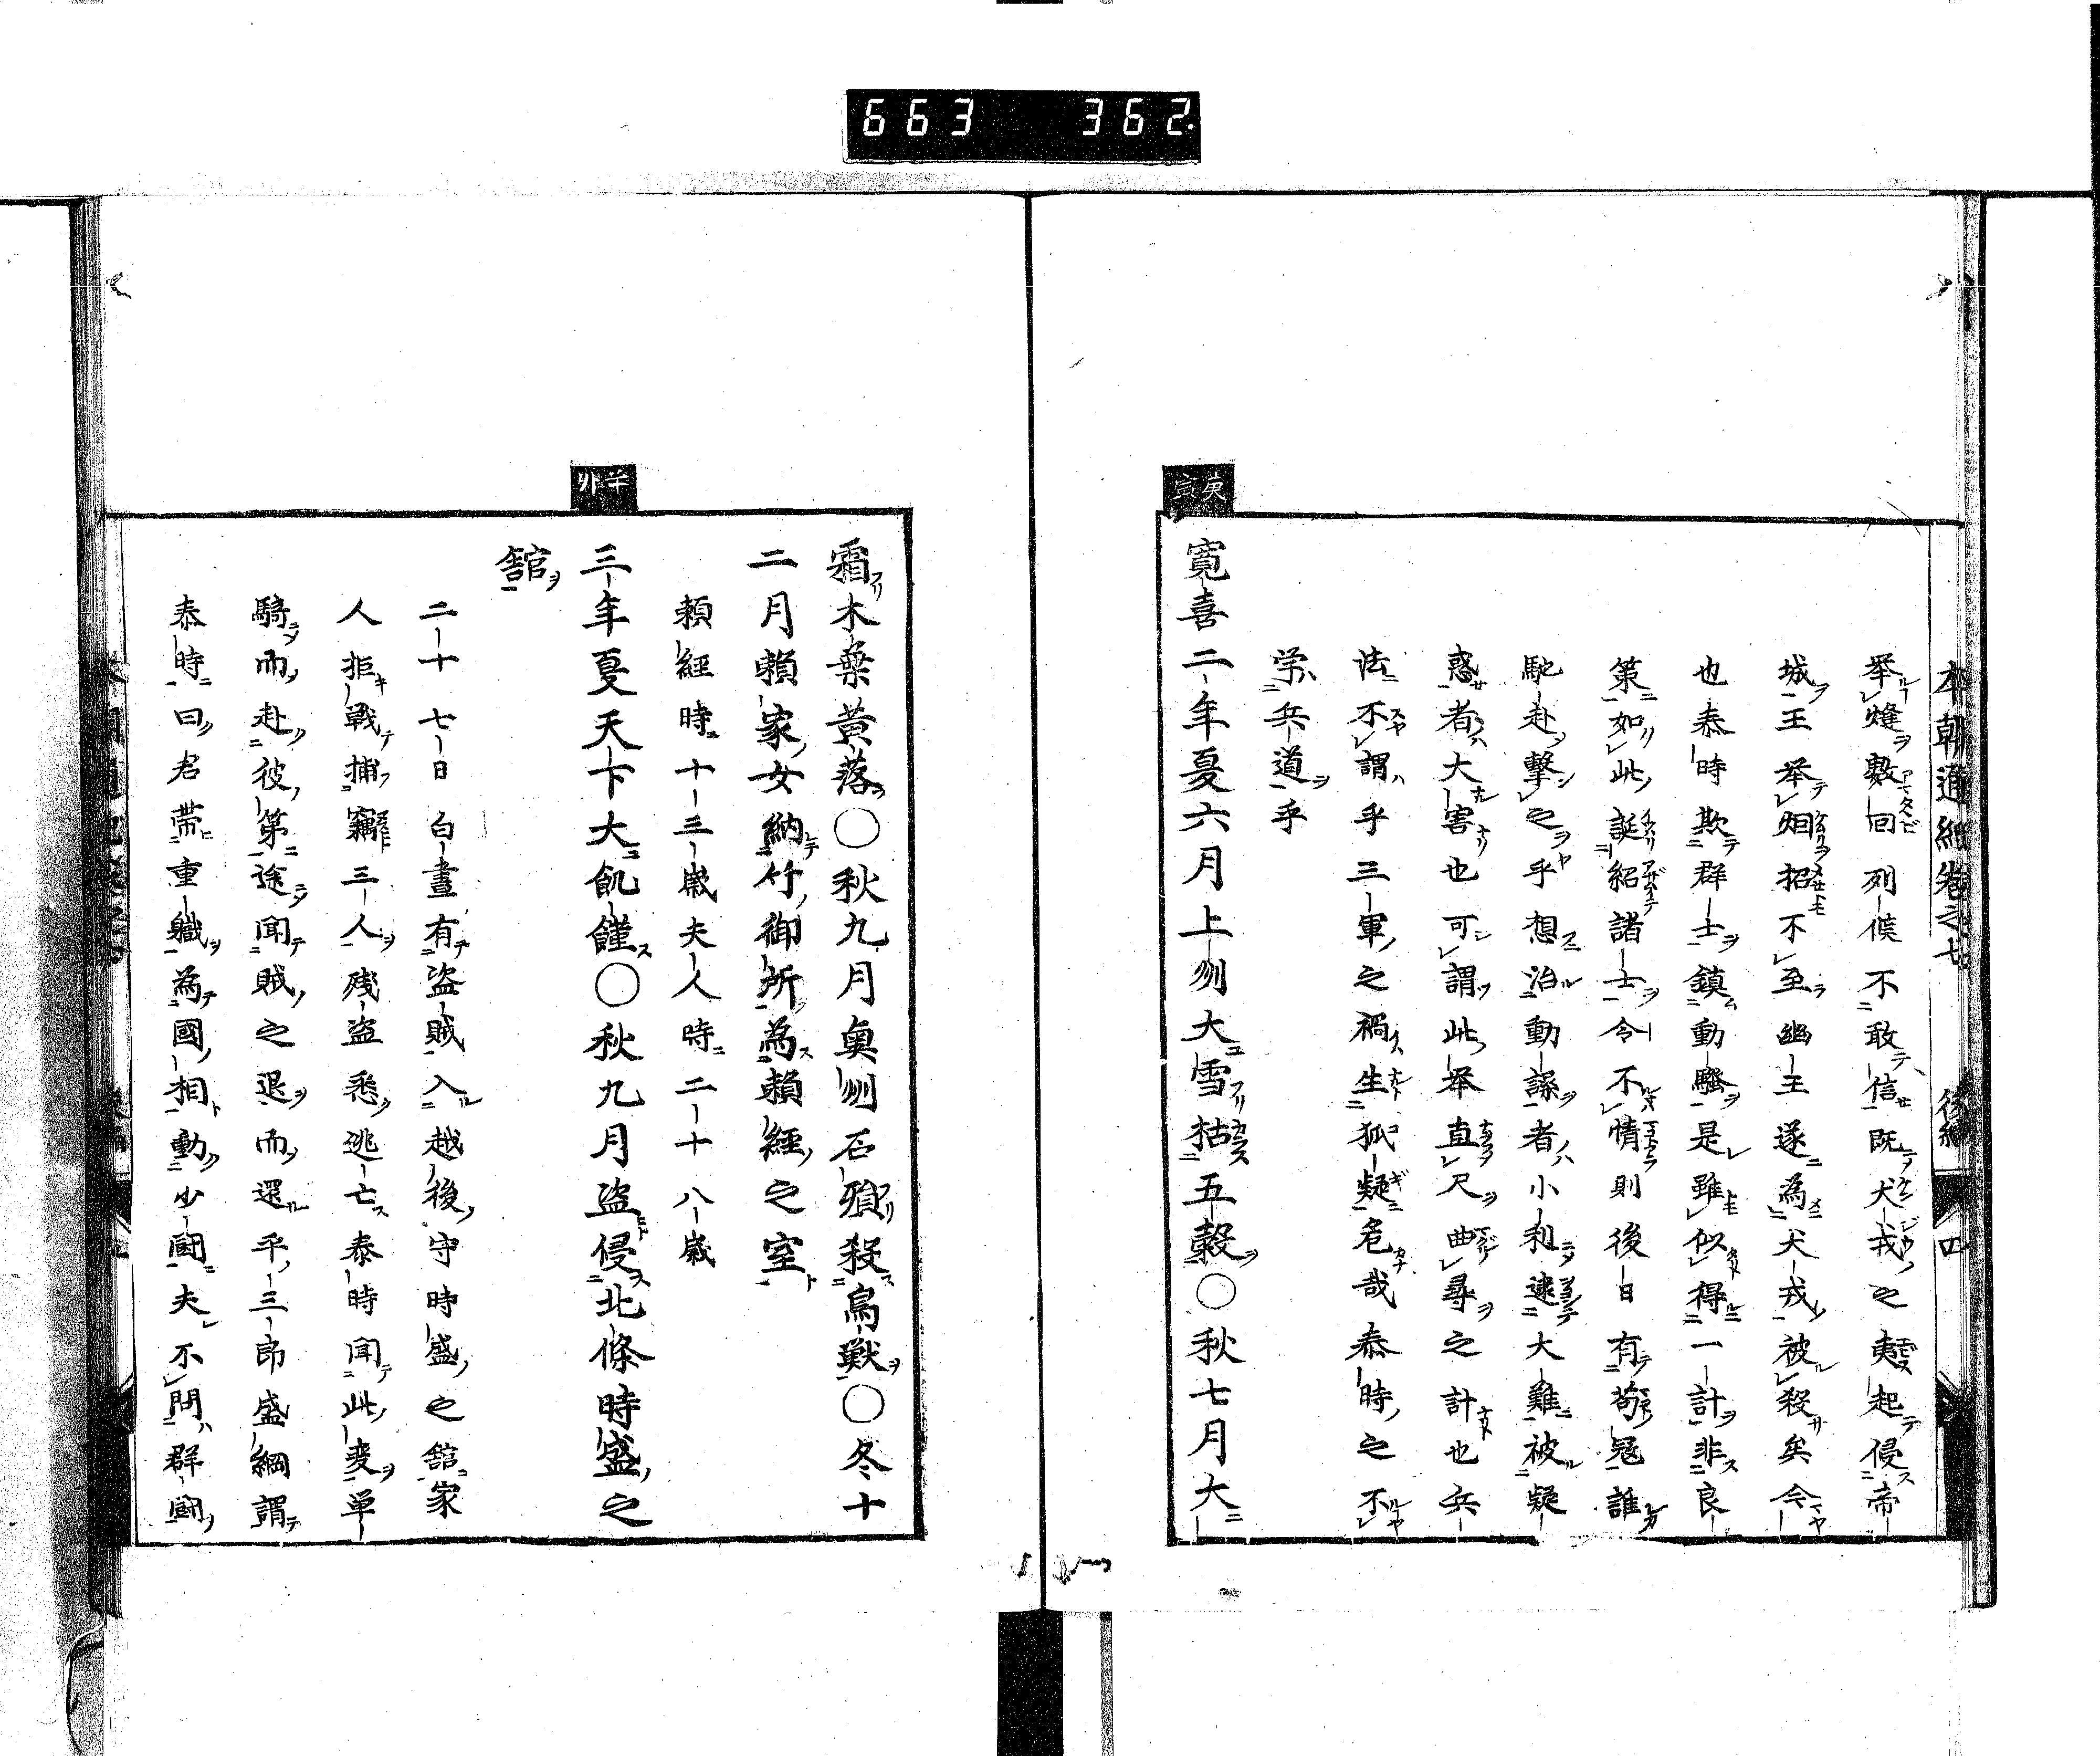 663 362
本朝通紀卷之七 後編 四
挙烽數回列候不敢信既犬戎之夷起侵帝
城王挙烟招不至幽王遂為犬戎被殺矣今
也泰時欺群士鎮動騒是雖似得一計非良
策如此誕紹諸士令不情則後日有苟冦誰
馳赴撃之乎想治動謀者小利逮大難被疑
惑者大害也可謂此挙直尺曲尋之計也兵
法不謂乎三軍之禍生狐疑危哉泰時之不
学兵道乎
庚寅
寛喜二年夏六月上刕大雪枯五穀〇秋七月大
霜木葉黄落〇秋九月奥刕石殞殺鳥獣〇冬十
二月頼家女納竹御所為頼經之室
頼經時十三歳夫人時二十八歳
辛卯
三年夏天下大飢饉〇秋九月盗侵北條時盛之
舘
二十七日白晝有盗賊入越後守時盛之舘家
人拒戰捕竊三人残盗悉逃亡泰時聞此変単
騎而赴彼第途聞賊之退而還平三郎盛綱謂
泰時曰君帯重職為國相動少鬪夫不問群鬪